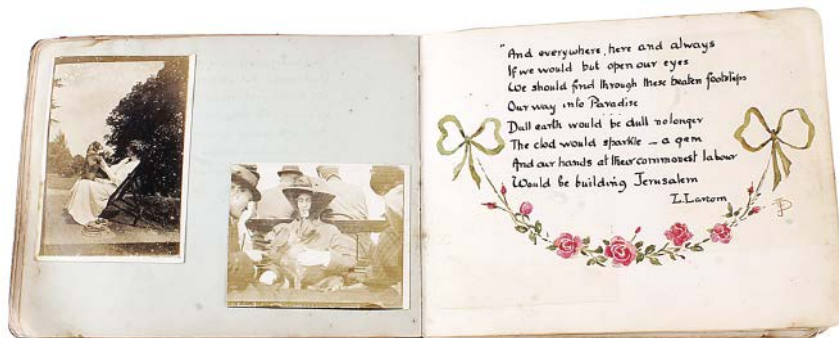 "And everywhere, here and always
If we would but open our eyes
We should find through these beaten footsteps
Our way into Paradise
Dull earth would be dull no longer
The clod would sparkle – a gem
And our hands at their commonest labour
Would be building Jerusalem
L. Larcom